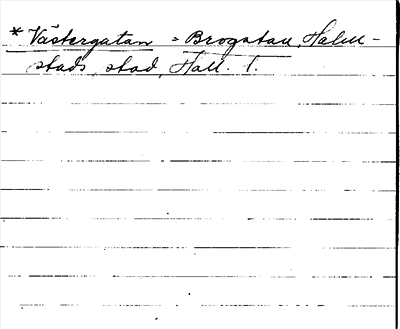 * Västergatan = Brogatan, Halm-
stads stad, Hall. T.